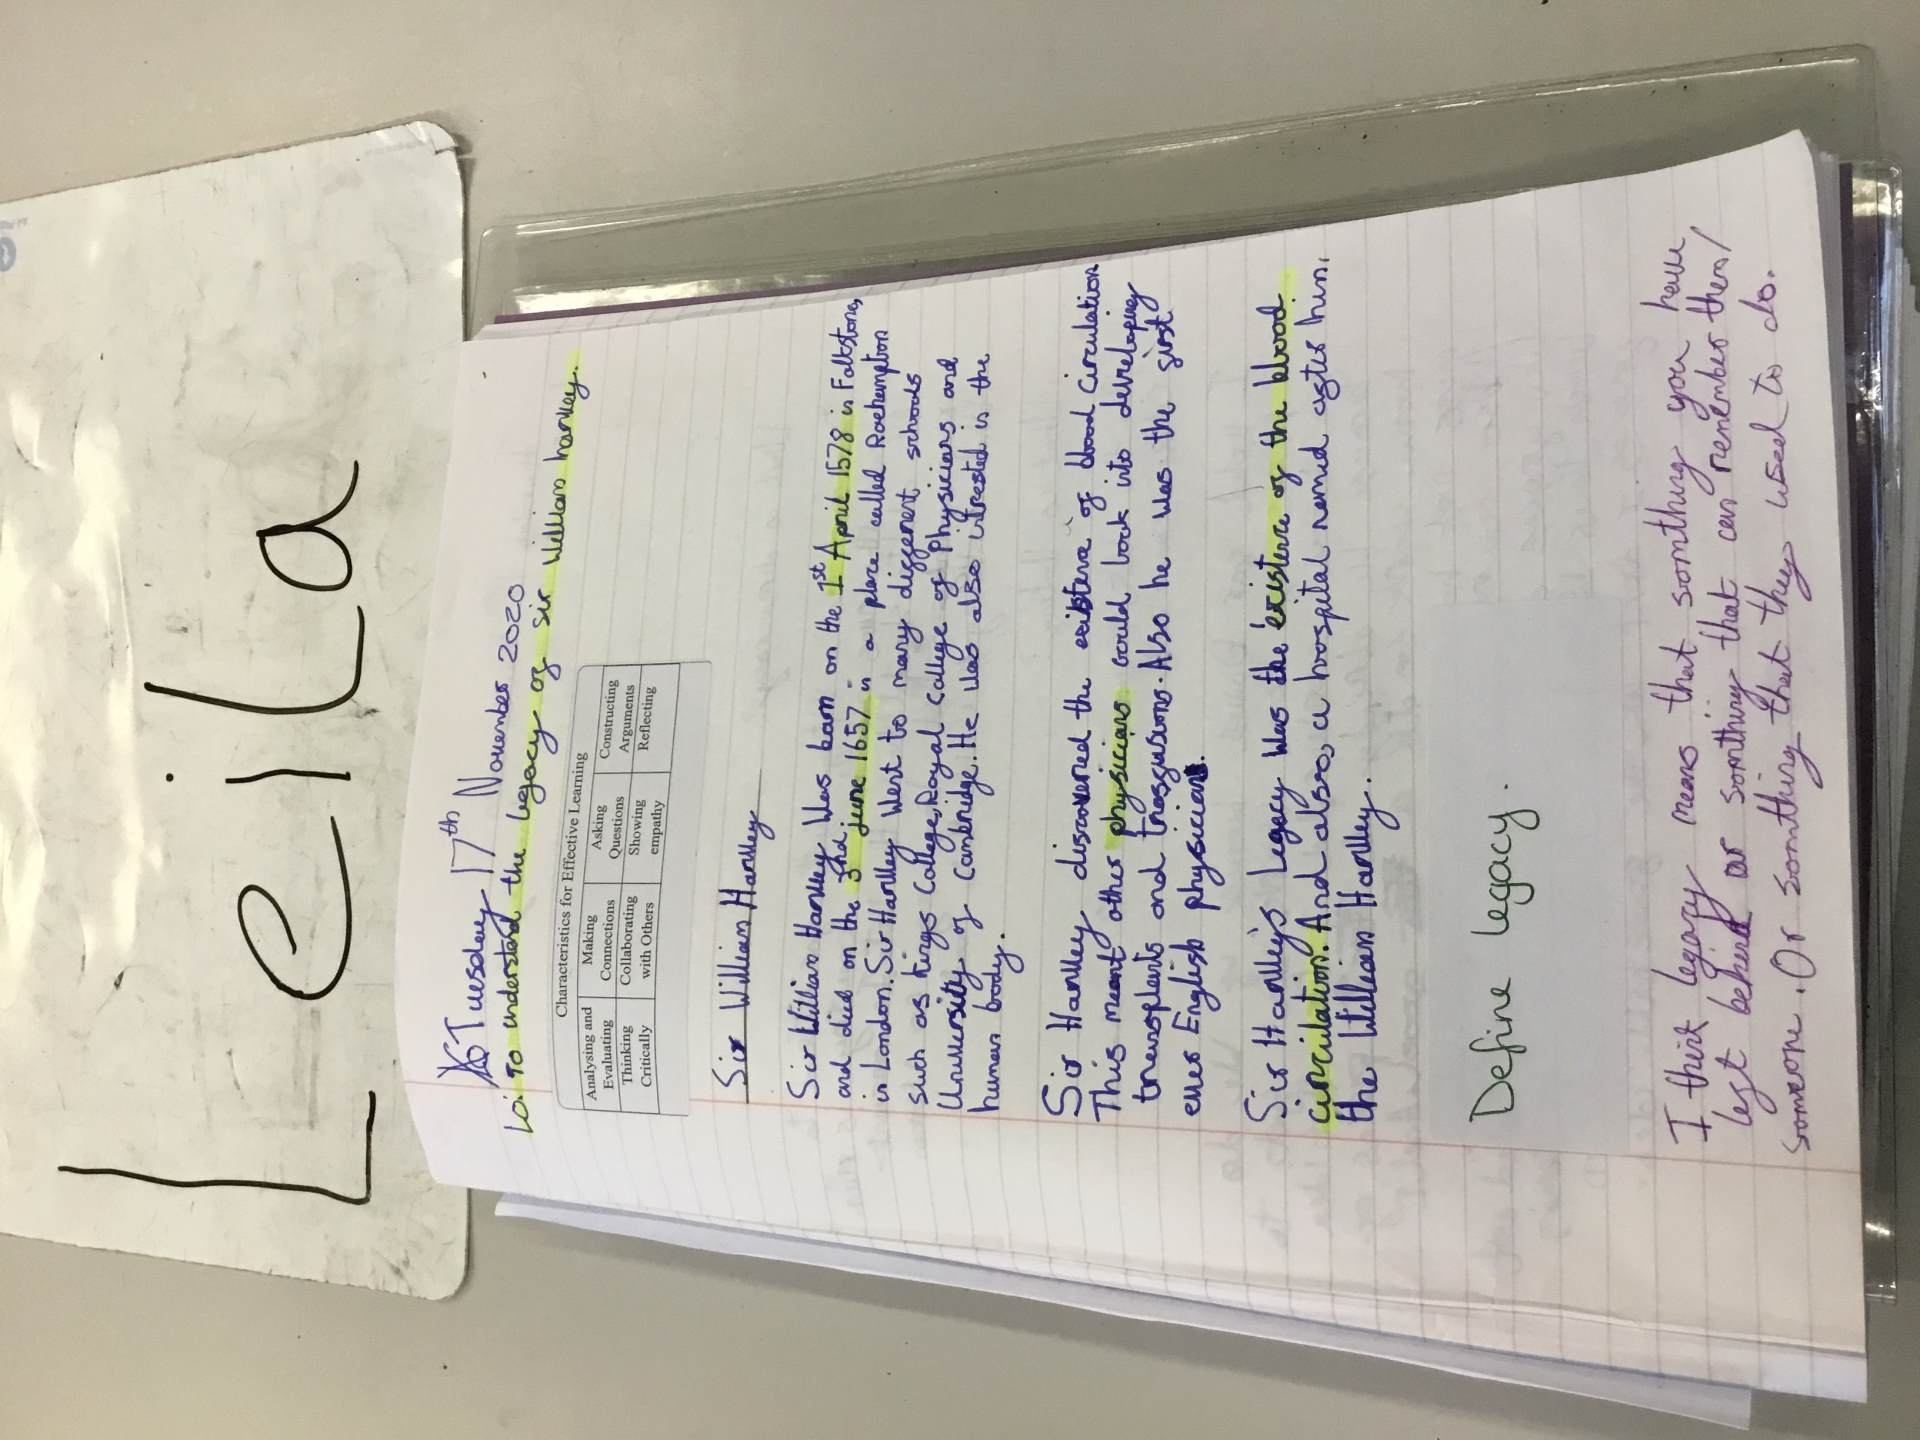 Leila
Tuesday 17th November 2020
Lo: To understand the legacy of sir William harvley.
Characteristics for Effective Learning
Analysing and Evaluating
Making Connections
Asking Questions
Constructing Arguments
Thinking Critically
Collaborating with Others
Showing empathy
Reflecting
Sir William Harvley
Sir William Harvley was born on the 1st April 1578 in Folkstone,
and died on the 3rd june 1657 in a place called Roehampton
in London. Sir Harvley went to many different schools
such as kings College, Royal College of Physicians and
University of Cambridge. He was also intrested in the
human body.
Sir Harvley discovered the existence of blood circulation
This meant other physicians could look into developing
transplants and transfusions. Also he was the first
ever English physician.
Sir Harvley's Legacy was the existence of the blood
circulation. And also, a hospital named after him,
the William Harvley.
Define legacy.
I think legacy means that somthing you have
left behind or somthing that can remember them/
someone. Or somthing that they used to do.